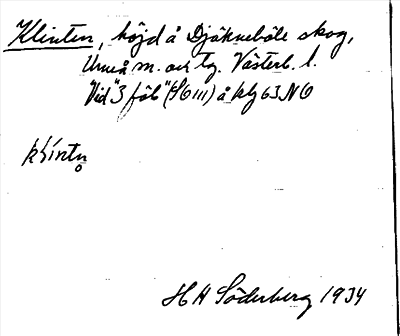 Klinten, höjd å Djäkneböle skog,
Umeå sn. och tg. Västerb. l.
"Vid "3 föb" (SO III) å kbl 63 NO
klintn̥
H A Söderberg 1934